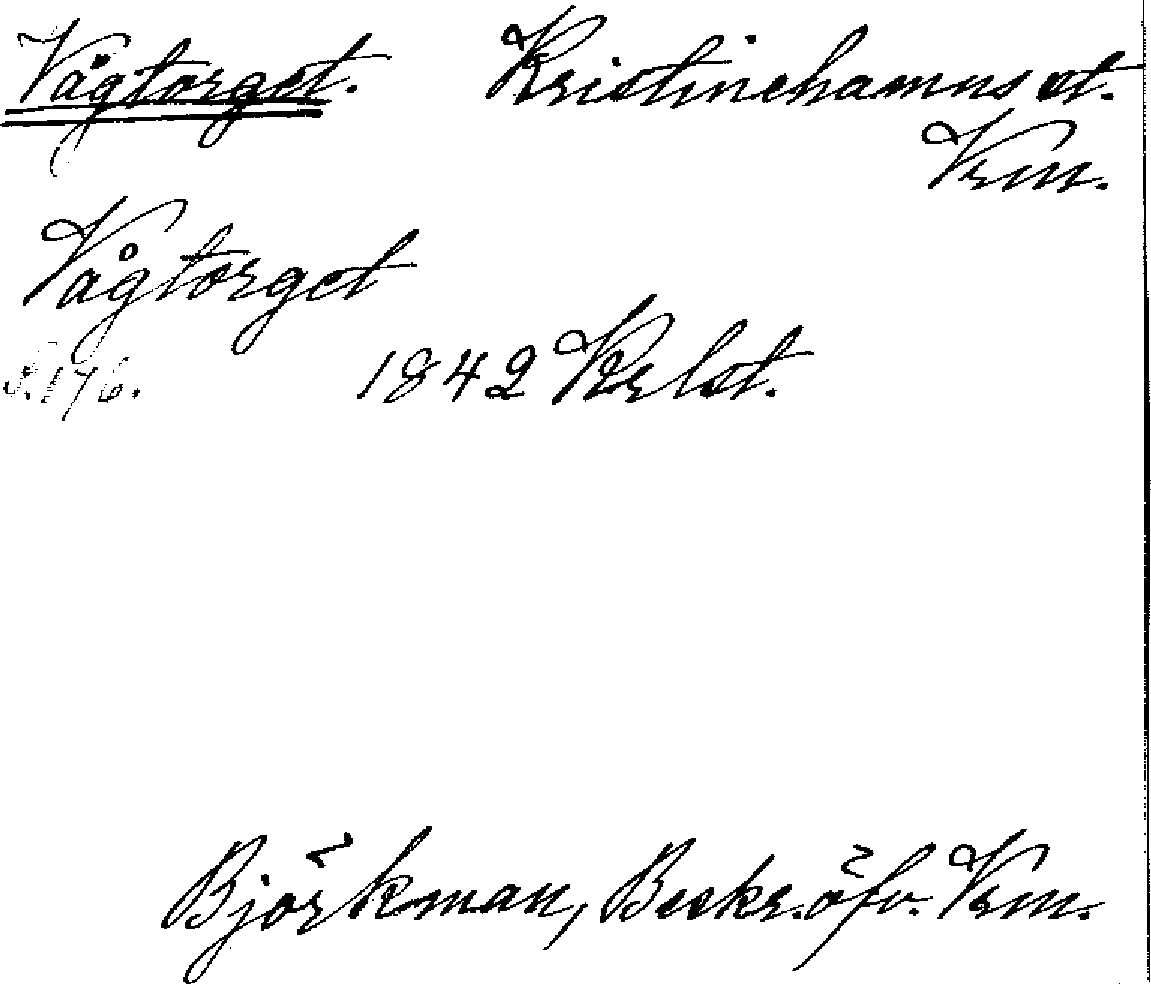 Vågtorget. Kristinehamns st.
Vrm.
Vågtorget
S. 176. 1842 Krlst.
Björkman, Beskr. öfv. Vrm.